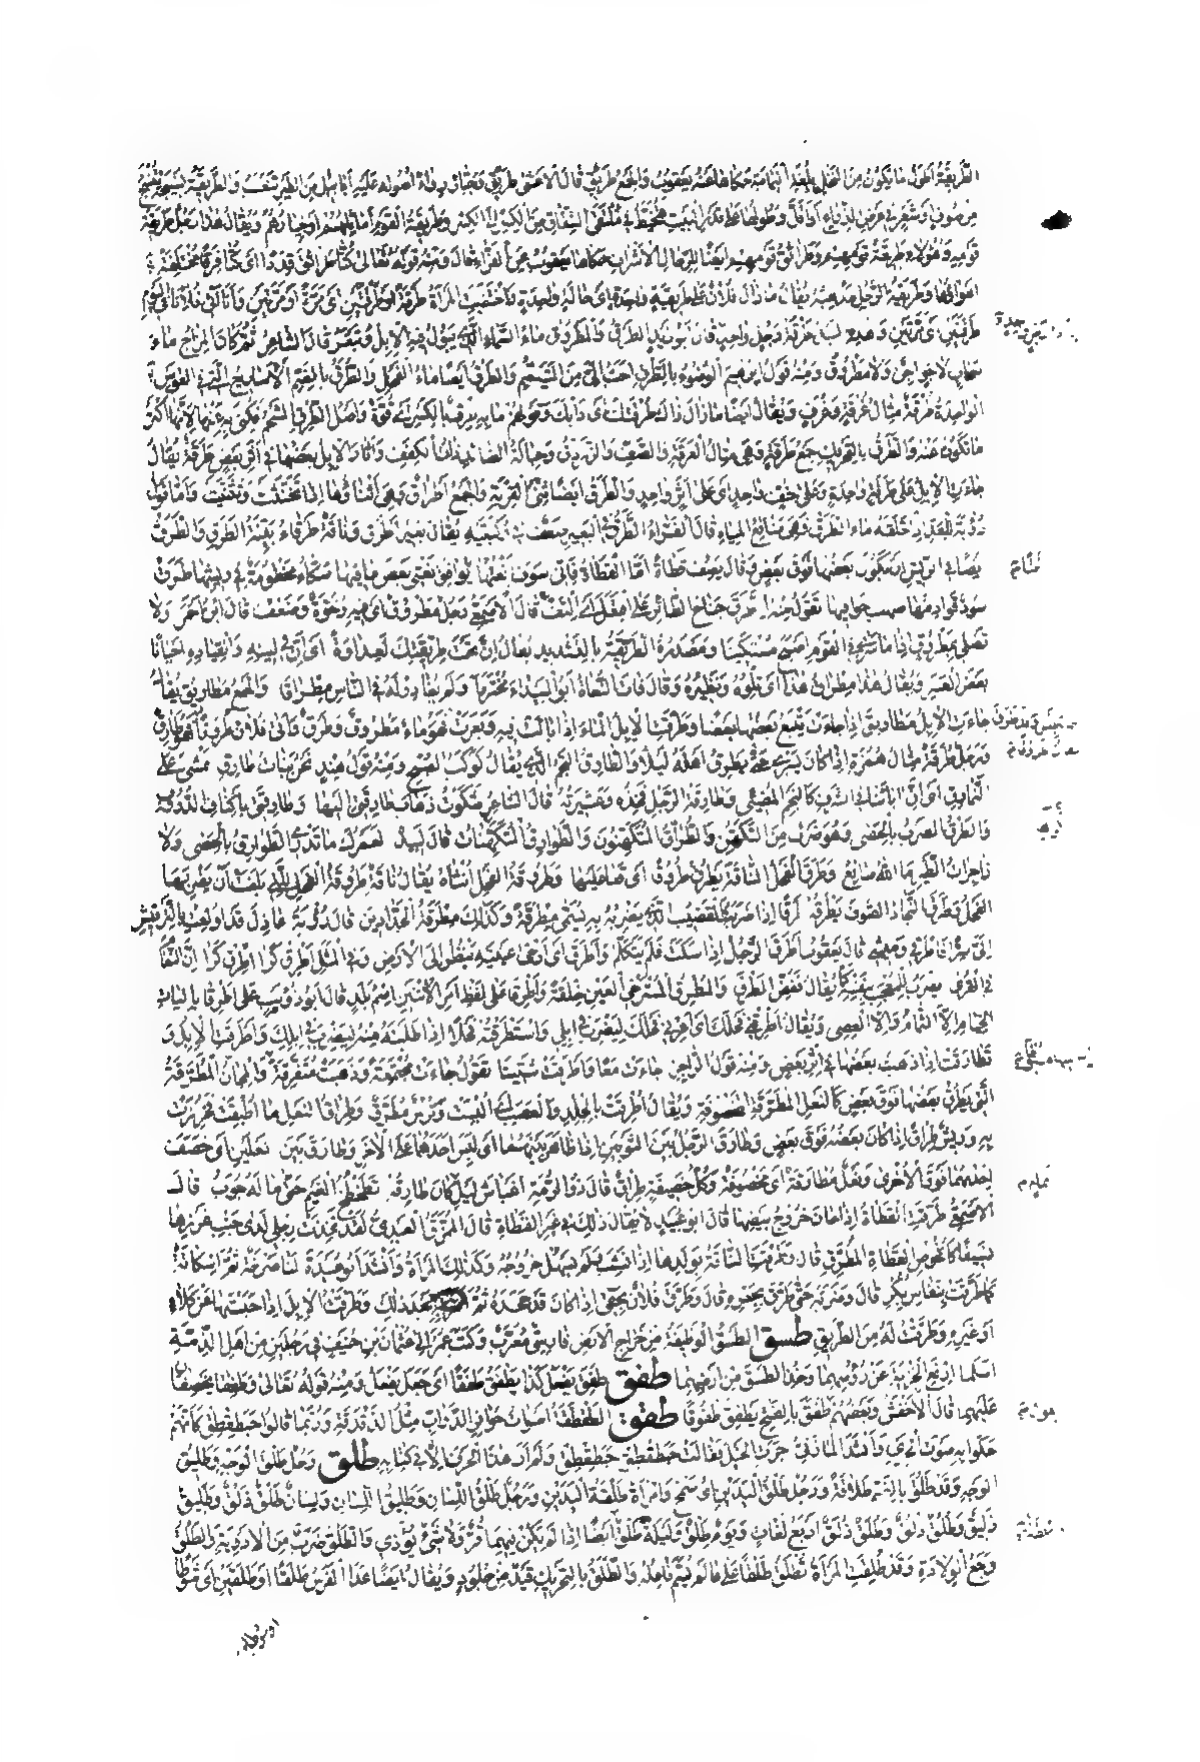 الطَّرِيقَةُ أطول ما يكون من النخل بلغة اليمامة حكاها عنه يعقوب والجمع طريق قال الأعشى طريق وجبار رواء أصوله عليه أبابيل من الطير تنعب والطريقة نسيجة تنسج
من صوف وشعر في عرض الذراع أو أقل وطولها على قدر البيت فتخيط في ملتقى الشقاق من الكسر إلى الكسر وطريقة القوم أماثلهم وخيارهم ويقال هذا رجل طريقة
قومه وهؤلاء طريقة قومهم وطرائق قومهم أيضا للرجال الأشراف حكاها يعقوب عن الفراء قال ومنه قوله تعالى كنا طرائق قددا أي كنا فرقا مختلفة
أهواؤها وطريقة الرجل مذهبه يقال ما زال فلان على طريقة واحدة أي حالة واحدة واختضبت المرأة طرقة أو طرقتين أي مرة أو مرتين وأنا آتي فلانا في اليوم
طرقتين أي مرتين وهذه النبل طرقة رجل واحد قال أبو زيد الطرق والمطروق ماء السماء الذي تبول فيه الإبل وتبعر قال الشاعر ثم كان المزاج ماء
سحاب لا جو آجن ولا مطروق ومنه قول إبراهيم الوضوء بالطرق أحب إلي من التيمم والطرق أيضا ماء الفحل والطرق بالضم الأساريع التي في القوس
الواحدة طرقة مثال غرفة وغرف ويقال أيضا ما زال ذلك طرقتك أي دأبك وقولهم ما به طرق بالكسر أي قوة وأصل الطرق الشحم فكنى به عنها لأنها أكثر
ما تكون عنه والطرق بالتحريك جمع طرقة وهي مثال العرقة والصف والرزدق وحبالة الصائد ذات الكفف وآثار الإبل بعضها في أثر بعض طرقة يقال
جاءت الإبل على طرقة واحدة وعلى خف واحد أي على أثر واحد والطرق أيضا ثني القربة والجمع أطراق وهي أثناؤها إذا تخنثت وتثنت وأما قول
رؤبة للعد إذ خلفه ماء الطرق فهي مناقع المياه قال الفراء الطرق في البعير ضعف في ركبتيه يقال بعير أطرق وناقة طرقاء بينة الطرق والطرق
أيضا في الريش أن يكون بعضها فوق بعض وقال يصف قطاة أما القطاة فإني سوف أنعتها نعتا يوافق نعتي بعض ما فيها سكاء مخطومة في ريشها طرق
سود قوادمها صهب خوافيها تقول منه اطرق جناح الطائر على افتعل أي التف قال الأصمعي رجل مطروق أي فيه رخوة وضعف قال ابن أحمر ولا
تصلي بمطروق إذا ما سرى في القوم أصبح مستكينا ومصدره الطريقة بالتشديد يقال إن تحت طريقتك لعندأوة أي إن في لينه وانقياده أحيانا
بعض العسر ويقال هذا مطراق هذا أي تلوه ونظيره وقال فات البغاة أبو البيداء محتزما ولم يغادر له في الناس مطراقا والجمع مطاريق يقال
جاءت الإبل مطاريق إذا جاءت يتبع بعضها بعضا وطرقت الإبل الماء إذا بالت فيه وبعرت فهو ماء مطروق وطرق وأتى فلان طروقا
ورجل طرقة مثال همزة إذا كان يسري حتى يطرق أهله ليلا والطارق النجم الذي يقال كوكب الصبح ومنه قول هند نحن بنات طارق نمشي على
النمارق أي إن أبانا في الشرف كالنجم المضيء وطارقة الرجل فخذه وعشيرته قال الشاعر شكوت ذهاب طارقتي إليها وطارقتي بأكناف الدروب
والطرق الضرب بالحصى وهو ضرب من التكهن والطراق المتكهنون والطوارق المتكهنات قال لبيد لعمرك ما تدري الطوارق بالحصى ولا
زاجرات الطير ما الله صانع وطرق الفحل الناقة يطرق طروقا أي قعا عليها وطروقة الفحل أنثاه يقال ناقة طروقة الفحل للتي بلغت أن يضربها
الفحل وطرق النجاد الصوف يطرقه طرقا إذا ضربه والقضيب الذي يضربه به يسمى مطرقة وكذلك مطرقة الحدادين قال رؤبة عاذل قد أولعت بالترقيش
إلي سرا فاطرقي وميشي قال يعقوب أطرق الرجل إذا سكت فلم يتكلم وأطرق أي أرخى عينيه ينظر إلى الأرض وفي المثل أطرق كرا أطرق كرا إن النعام
في القرى يضرب للمعجب بنفسه كما يقال فغض الطرف والمطرق المسترخي العين خلقة وأطرقا على لفظ أمر الاثنين اسم بلد قال أبو ذؤيب على أطرقا باليات
الخيام إلا الثمام وإلا العصي ويقال أطرقني فحلك أي أعرني فحلك ليضرب في إبلي واستطرقته فحلا إذا طلبته منه ليضرب في إبلك وأطرقت الإبل و
تطارقت إذا ذهب بعضها في إثر بعض ومنه قول الراجز جاءت معا وأطرقت شتيتا يقول جاءت مجتمعة وذهبت متفرقة والمجان المطرقة
التي يطرق بعضها فوق بعض كالنعل المطرقة المخصوفة ويقال أطرقت بالجلد والعصب أي ألبست وترس مطرق وطراق النعل ما أطبقت فخرزت
به وريش طراق إذا كان بعضه فوق بعض وطارق الرجل بين الثوبين إذا ظاهر بينهما أي لبس أحدهما على الآخر وطارق بين نعلين أي خصف
إحداهما فوق الأخرى ونعل مطارقة أي مخصوفة وكل خصيفة طراق قال ذو الرمة أغباش ليل تمام كان طارقه تطخطخ الغيم حتى ما له جوب قال
الأصمعي طرقت القطاة إذا حان خروج بيضها قال أبو عبيد لا يقال ذلك في غير القطاة قال الممزق العبدي لقد تخذت رجلي لدى جنب غرزها
نسيفا كأفحوص القطاة المطرق قال وطرقت الناقة بولدها إذا نشب فلم يسهل خروجه وكذلك المرأة وأنشد أبو عبيدة لنا صرخة ثم إسكاتة
كما طرقت بنفاس بكر قال وضربه حتى طرق بجعره قال وطرق فلان بحقي إذا كان قد جحده ثم أقر به بعد ذلك وطرقت الإبل إذا حبستها عن كلاء
أو غيره وطرقت له من الطريق طسق الطسق الوظيفة من خراج الأرض فارسي معرب وكتب عمر إلى عثمان بن حنيف في رجلين من أهل الذمة
أسلما ارفع الجزية عن رؤسهما وخذ الطسق من أرضيهما طفق طفق يفعل كذا يطفق طفقا أي جعل يفعل ومنه قوله تعالى وطفقا يخصفان
عليهما قال الأخفش وبعضهم طفق بالفتح يطفق طفوقا طقق الطقطقة أصوات حوافر الدواب مثل الدقدقة وربما قالوا حبطقطق كأنهم
حكوا به صوت الجري وأنشد المازني جرت الخيل فقالت حبطقطق حبطقطق ولم أر هذا الحرف إلا في كتابه طلق رجل طلق الوجه وطليق
الوجه وقد طلق بالضم طلاقة ورجل طلق اليدين أي سمح وامرأة طلقة اليدين ورجل طلق اللسان وطليق اللسان ولسان طلق ذلق وطليق
ذليق وطلق ذلق وطلق ذلق أربع لغات ويوم طلق وليلة طلق أيضا إذا لم يكن فيهما قر ولا شيء يؤذي والطلق ضرب من الأدوية والطلق
وجع الولادة وقد طلقت المرأة تطلق طلقا على ما لم يسم فاعله والطلق بالتحريك قيد من جلود ويقال أيضا عدا الفرس طلقا أو طلقين أي شوطا